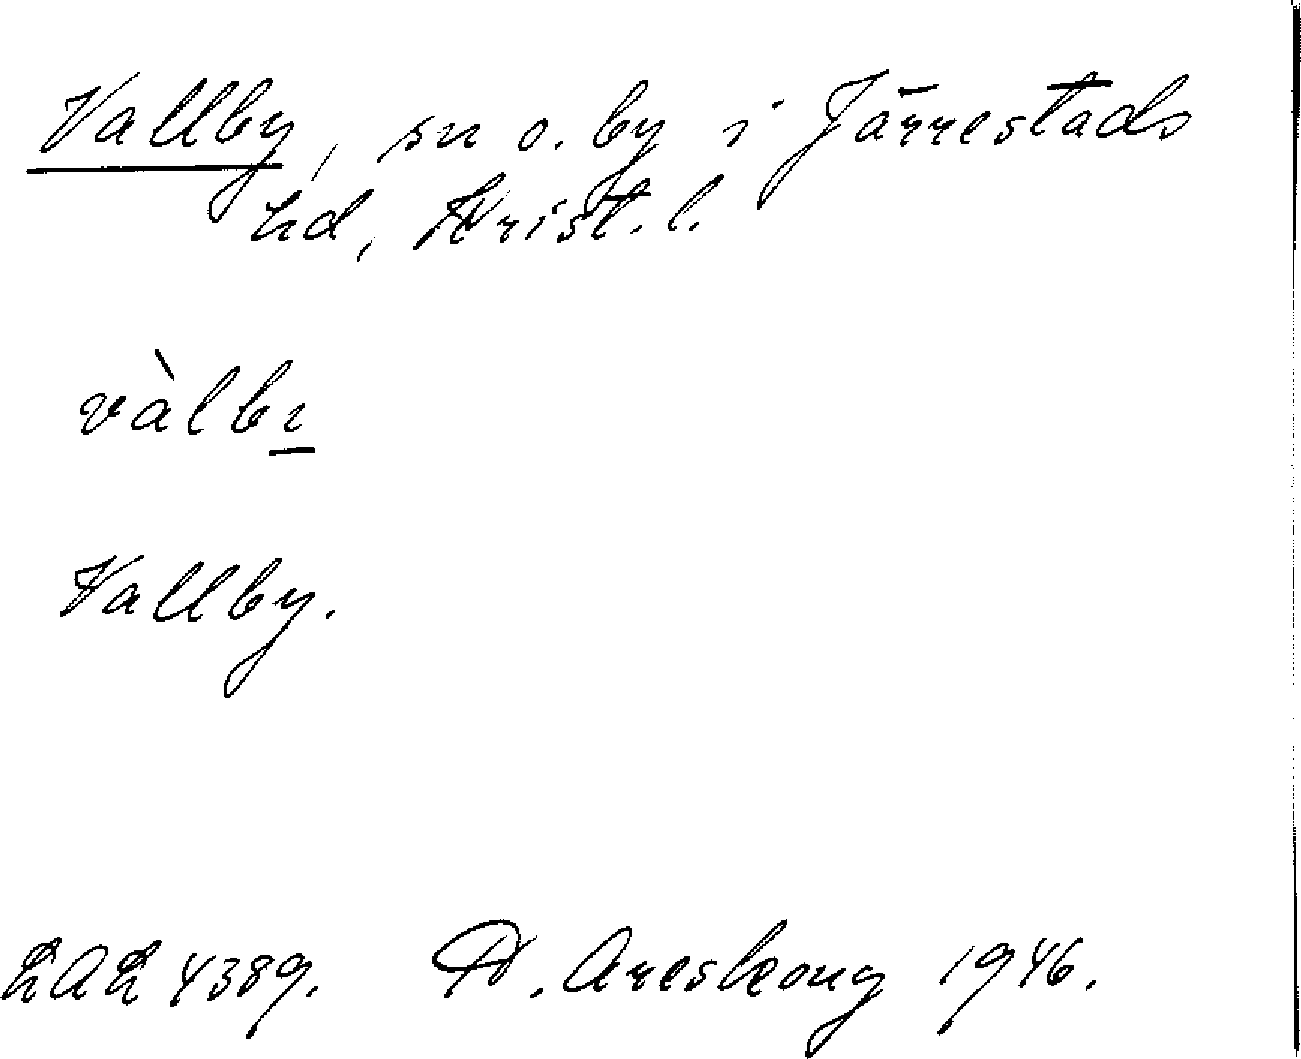 Vallby, sn o. by i Järrestads
hd, Krist. l.
vàlbı
Vallby.
LAL 4389. N. Areskoug 1946.